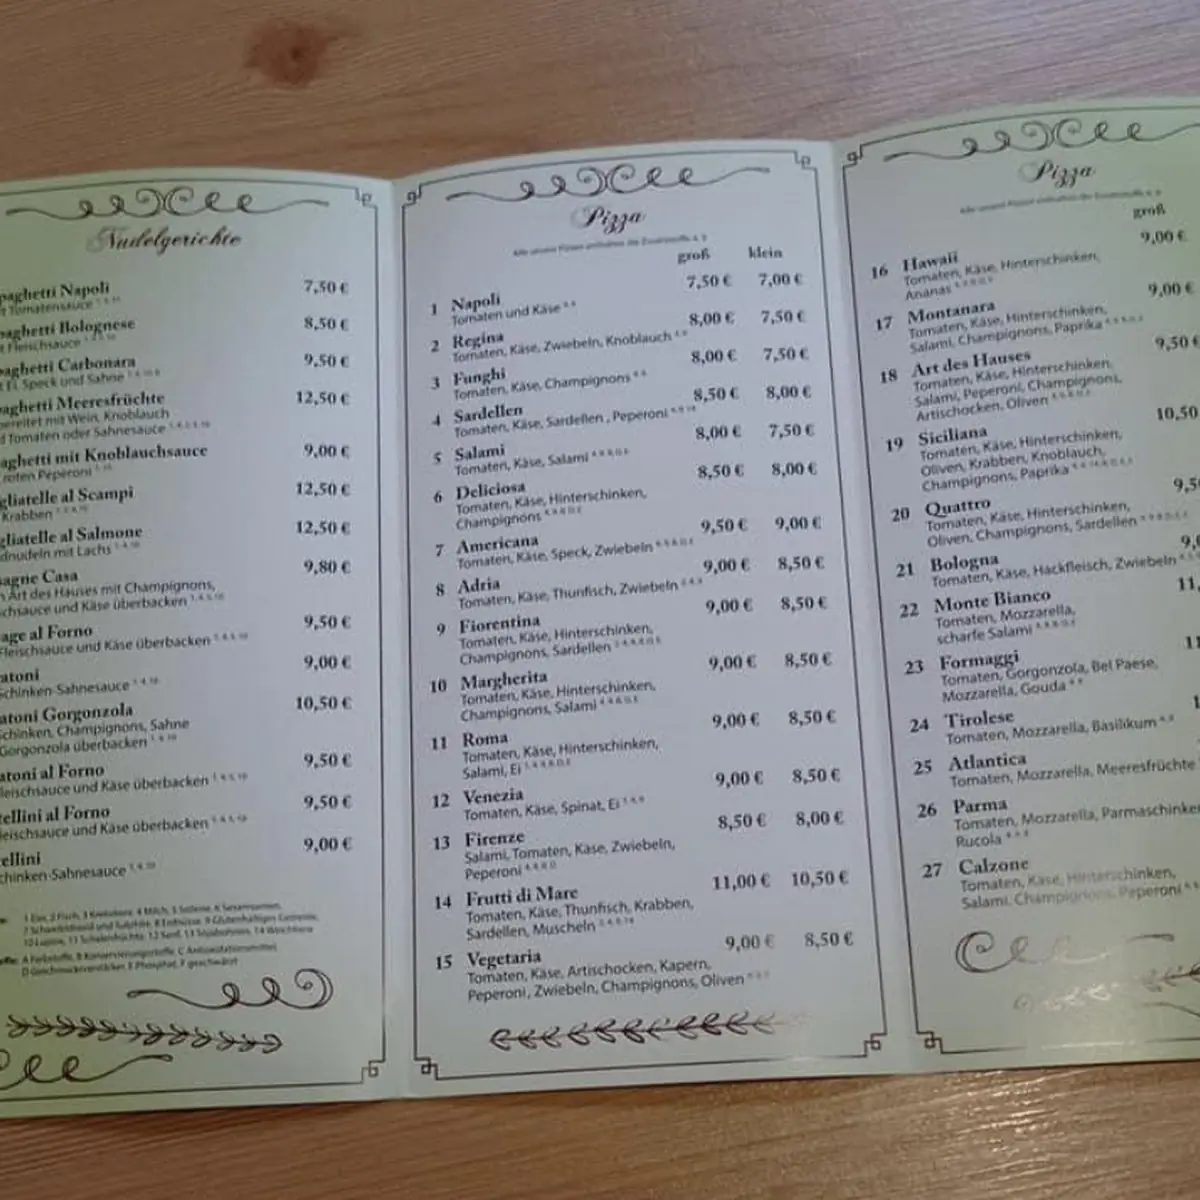 Nudelgerichte
paghetti Napoli 7,50 €
t Tomatensauce
paghetti Bolognese 8,50 €
t Fleischsauce
paghetti Carbonara 9,50 €
t Ei, Speck und Sahne
paghetti Meeresfrüchte 12,50 €
bereitet mit Wein, Knoblauch
d Tomaten oder Sahnesauce
aghetti mit Knoblauchsauce 9,00 €
roten Peperoni
gliatelle al Scampi 12,50 €
Krabben
gliatelle al Salmone 12,50 €
dnudeln mit Lachs
agne Casa 9,80 €
h Art des Hauses mit Champignons,
chsauce und Käse überbacken
age al Forno 9,50 €
Fleischsauce und Käse überbacken
atoni 9,00 €
Schinken-Sahnesauce
atoni Gorgonzola 10,50 €
Schinken, Champignons, Sahne
Gorgonzola überbacken
atoni al Forno 9,50 €
leischsauce und Käse überbacken
tellini al Forno 9,50 €
leischsauce und Käse überbacken
ellini 9,00 €
chinken-Sahnesauce
Pizza
Alle unsere Pizzen enthalten die Zusatzstoffe 4, 9
groß klein
1 Napoli 7,50 € 7,00 €
Tomaten und Käse
2 Regina 8,00 € 7,50 €
Tomaten, Käse, Zwiebeln, Knoblauch
3 Funghi 8,00 € 7,50 €
Tomaten, Käse, Champignons
4 Sardellen 8,50 € 8,00 €
Tomaten, Käse, Sardellen , Peperoni
5 Salami 8,00 € 7,50 €
Tomaten, Käse, Salami
6 Deliciosa 8,50 € 8,00 €
Tomaten, Käse, Hinterschinken,
Champignons
7 Americana 9,50 € 9,00 €
Tomaten, Käse, Speck, Zwiebeln
8 Adria 9,00 € 8,50 €
Tomaten, Käse, Thunfisch, Zwiebeln
9 Fiorentina 9,00 € 8,50 €
Tomaten, Käse, Hinterschinken,
Champignons, Sardellen
10 Margherita 9,00 € 8,50 €
Tomaten, Käse, Hinterschinken,
Champignons, Salami
11 Roma 9,00 € 8,50 €
Tomaten, Käse, Hinterschinken,
Salami, Ei
12 Venezia 9,00 € 8,50 €
Tomaten, Käse, Spinat, Ei
13 Firenze 8,50 € 8,00 €
Salami, Tomaten, Käse, Zwiebeln,
Peperoni
14 Frutti di Mare 11,00 € 10,50 €
Tomaten, Käse, Thunfisch, Krabben,
Sardellen, Muscheln
15 Vegetaria 9,00 € 8,50 €
Tomaten, Käse, Artischocken, Kapern,
Peperoni , Zwiebeln, Champignons, Oliven
Pizza
groß
16 Hawaii 9,00 €
Tomaten, Käse, Hinterschinken,
Ananas
17 Montanara 9,00 €
Tomaten, Käse, Hinterschinken,
Salami, Champignons, Paprika
18 Art des Hauses 9,50 €
Tomaten, Käse, Hinterschinken,
Salami, Peperoni, Champignons,
Artischocken, Oliven
19 Siciliana 10,50
Tomaten, Käse, Hinterschinken,
Oliven, Krabben, Knoblauch,
Champignons, Paprika
20 Quattro 9,5
Tomaten, Käse, Hinterschinken,
Oliven, Champignons, Sardellen
21 Bologna 9,
Tomaten, Käse, Hackfleisch, Zwiebeln
22 Monte Bianco 11,
Tomaten, Mozzarella,
scharfe Salami
23 Formaggi 11
Tomaten, Gorgonzola, Bel Paese,
Mozzarella, Gouda
24 Tirolese 1
Tomaten, Mozzarella, Basilikum
25 Atlantica
Tomaten, Mozzarella, Meeresfrüchte
26 Parma
Tomaten, Mozzarella, Parmaschinke
Rucola
27 Calzone
Tomaten, Käse, Hinterschinken,
Salami, Champignons, Peperoni